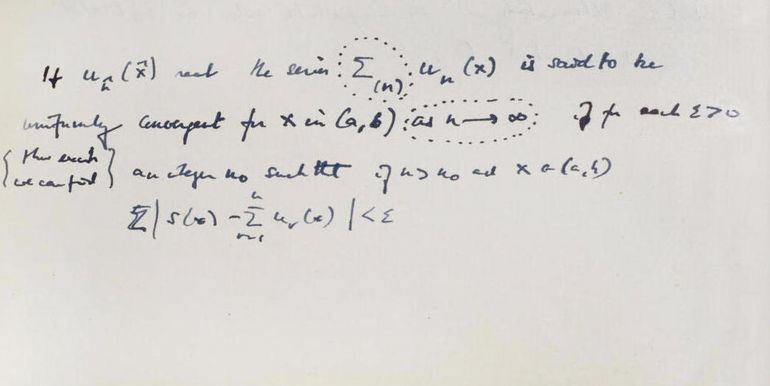 If uₙ(x) real the series Σ₍ₙ₎ uₙ(x) is said to be
uniformly convergent for x in (a, b) as n → ∞ if for each ε > 0
{ there exists / we can find } an integer n₀ such that if n > n₀ and x in (a, b)
| S(x) − Σⁿᵣ₌₁ uᵣ(x) | < ε